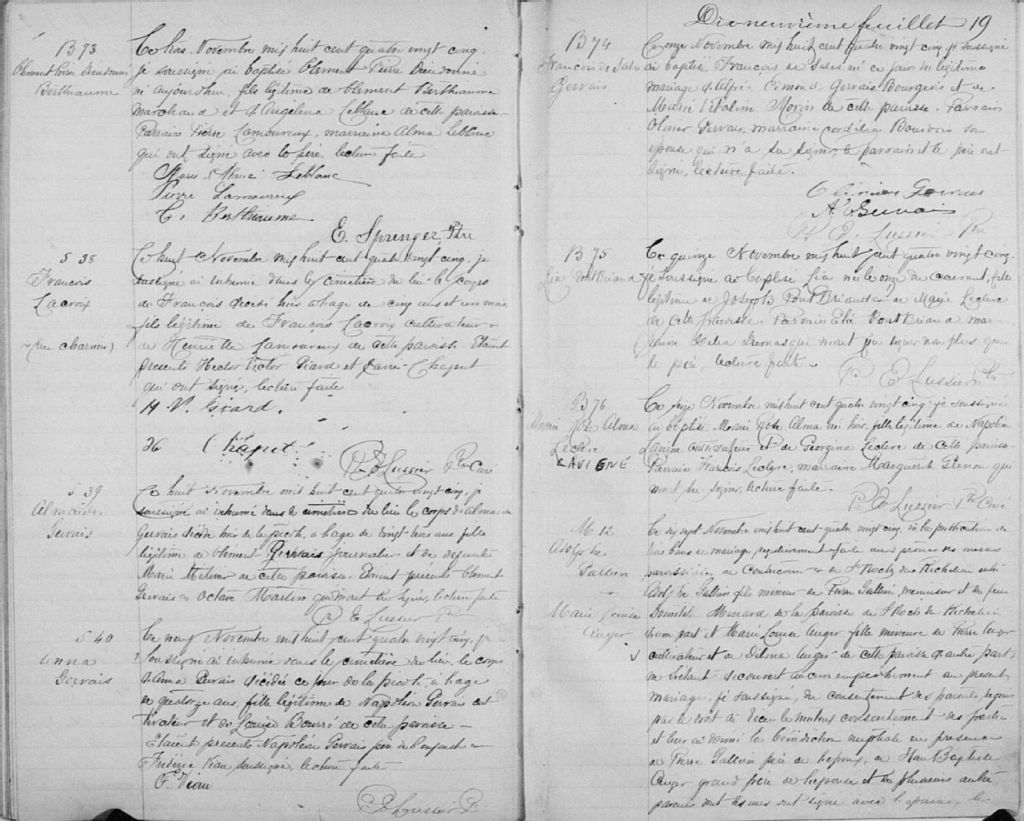 B 73
Clement Pierre Dieudonné
Berthiaume
Ce trois Novembre mil huit cent quatre vingt cinq,
je soussigné ai baptisé Clement Pierre Dieudonné
né aujourd'hui, fils légitime de Clement Berthiaume
marchand et d'Angelina Leblanc de cette paroisse
Parrain Pierre Lamoureux, marraine Alma Leblanc
qui ont signé avec le père, lecture faite
Marie Leblanc
Pierre Lamoureux
C. Berthiaume
E. Sprenger, Ptre
S 38
Francois
Lacroix
Ce huit Novembre mil huit cent quatre vingt cinq, je
soussigné ai inhumé dans le cimetière du lieu le corps
de François décédé hier a l'age de cinq ans et un mois
fils légitime de François Lacroix cultivateur
et de Henriette Lamoureux de cette paroisse. Etaient
présents Hector Victor Girard et Chaput
qui ont signé, lecture faite
H. V. Girard.
Chaput
P E Lussier Ptre Curé
S 39
Almaïde
Gervais
Ce huit Novembre mil huit cent quatre vingt cinq, je
soussigné ai inhumé dans le cimetière du lieu le corps d'Almaïde
Gervais décédée hier de la picote, a l'age de vingt trois ans fille
légitime de Clement Gervais journalier et de défunte
Marie de cette paroisse. Etaient présents Clement
Gervais & Octave Martin qui n'ont su signer, lecture faite
P E Lussier Ptre
S 40
Anna
Gervais
Ce neuf Novembre mil huit cent quatre vingt cinq, je
soussigné ai inhumé dans le cimetière du lieu, le corps
d'Anna Gervais décédée ce jour de la picote, a l'age
de quatorze ans, fille légitime de Napoléon Gervais cul
tivateur et de Louise Bourré de cette paroisse
Etaient présents Napoléon Gervais père de l'enfant &
Frédéric Viau soussigné, lecture faite
F. Viau
P E Lussier P
Dixneuvième feuillet 19
B 74
Francois de Sales
Gervais
Ce onze Novembre mil huit cent quatre vingt cinq, je soussigné
ai baptisé François de Sales né ce jour du légitime
mariage d'Alfred Edmond Gervais Bourgeois et de
Marie Vitaline Morin de cette paroisse. Parrain
Olivier Gervais, marraine Cordélia Bourdon son
épouse qui n'a su signer, le parrain et le père ont
signé, lecture faite.
Olivier Gervais
A E Gervais
P. E. Lussier Ptre
B 75
Lia Pont Briand
Ce quinze Novembre mil huit cent quatre vingt cinq,
je soussigné ai baptisé Lia née le onze du courant, fille
légitime de Joseph Pont Briand et de Marie Leclerc
de cette paroisse. Parrain Elie Pont Briand mar
raine Délia Dumas qui n'ont su signer non plus que
le père, lecture faite.
P. E Lussier Ptre
B 76
Marie Rose Alma
Leclerc
LAVIGNE
Ce seize Novembre mil huit cent quatre vingt cinq, je soussigné
ai baptisé Marie Rose Alma née hier, fille légitime de Napoléon
Lavigne et de Georgina Leclerc de cette paroisse
Parrain François Leclerc, marraine Marguerite Grenon qui
n'ont su signer, lecture faite.
P E Lussier Ptre Curé
M 12
Adolphe
Marie Louise
Auger
Ce dix sept Novembre mil huit cent quatre vingt cinq, vu la publication de
trois bans de mariage, régulièrement faite aux prônes des messes
paroissiales de Contrecoeur & de St Roch de Richelieu entre
Adolphe fils mineur de Pierre menuisier et de feue
Domitilde Menard de la paroisse de St Roch de Richelieu
d'une part et Marie Louise Auger fille mineure de Pierre Auger
cultivateur et de Délima Auger de cette paroisse d'autre part
ne s'étant découvert aucun empêchement au présent
mariage, je soussigné, du consentement des parents, requis
par le droit ai reçu le mutuel consentement des parties
et leur ai donné la bénédiction nuptiale en présence
de Pierre père de l'époux, de Jean Baptiste
Auger grand père de l'épouse et de plusieurs autres
parents dont les uns ont signé avec l'épouse, le